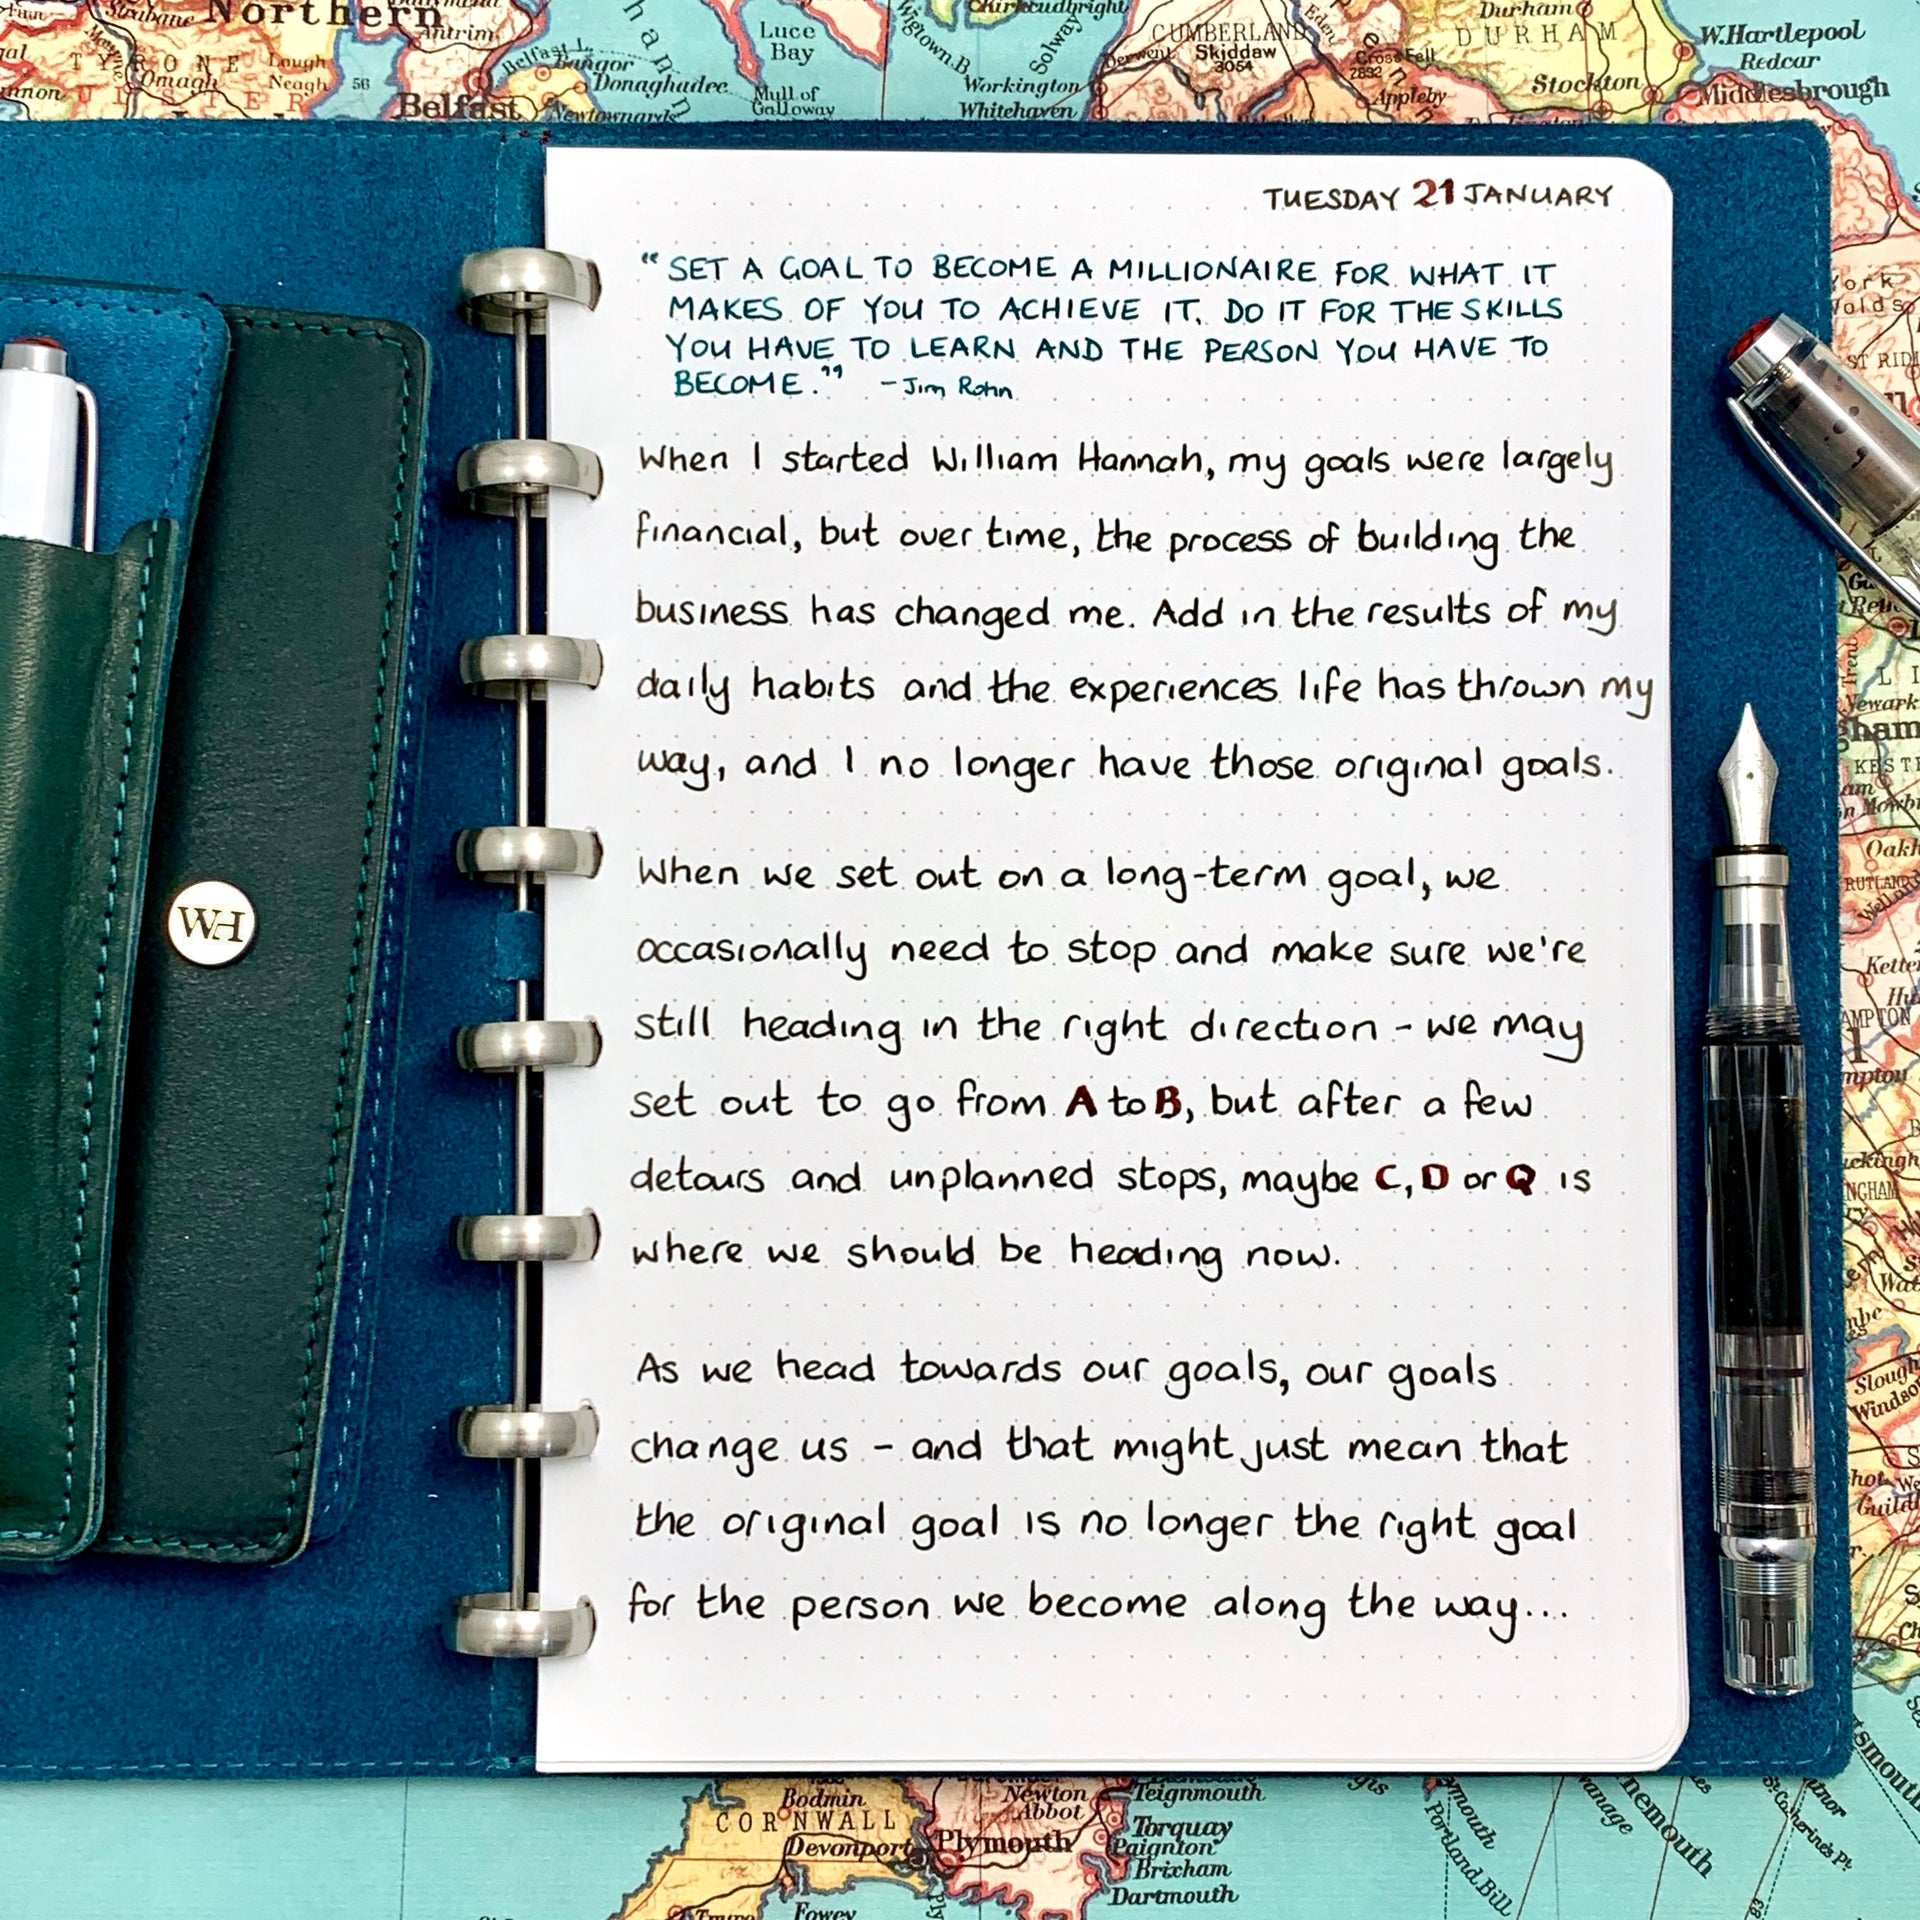 Northern
Strabane
Antrim
TYRONE
Omagh
Lough
Neagh
56
ULSTER
Belfast L.
Bangor
Donaghadee
Belfast
Newtownards
Luce
Bay
Mull of
Galloway
Wigtown B.
Kirkcudbright
Solway
Workington
Whitehaven
CUMBERLAND
Derwent
Skiddaw
3054
Eden
Cross Fell
2892
Appleby
Durham
DURHAM
Stockton
W.Hartlepool
Redcar
Middlesbrough
TUESDAY 21 JANUARY
“SET A GOAL TO BECOME A MILLIONAIRE FOR WHAT IT
MAKES OF YOU TO ACHIEVE IT. DO IT FOR THE SKILLS
YOU HAVE TO LEARN AND THE PERSON YOU HAVE TO
BECOME.” - Jim Rohn
When I started William Hannah, my goals were largely
financial, but over time, the process of building the
business has changed me. Add in the results of my
daily habits and the experiences life has thrown my
way, and I no longer have those original goals.
When we set out on a long-term goal, we
occasionally need to stop and make sure we're
still heading in the right direction - we may
set out to go from A to B, but after a few
detours and unplanned stops, maybe C, D or Q is
where we should be heading now.
As we head towards our goals, our goals
change us - and that might just mean that
the original goal is no longer the right goal
for the person we become along the way...
WH
Trent
RUTLAND
Slough
Windsor
Bodmin
CORNWALL
Devonport
Plymouth
Newton
Abbot
Teignmouth
Torquay
Paignton
Brixham
Dartmouth
Fowey
Portland Bill
St Catherine's Pt
83